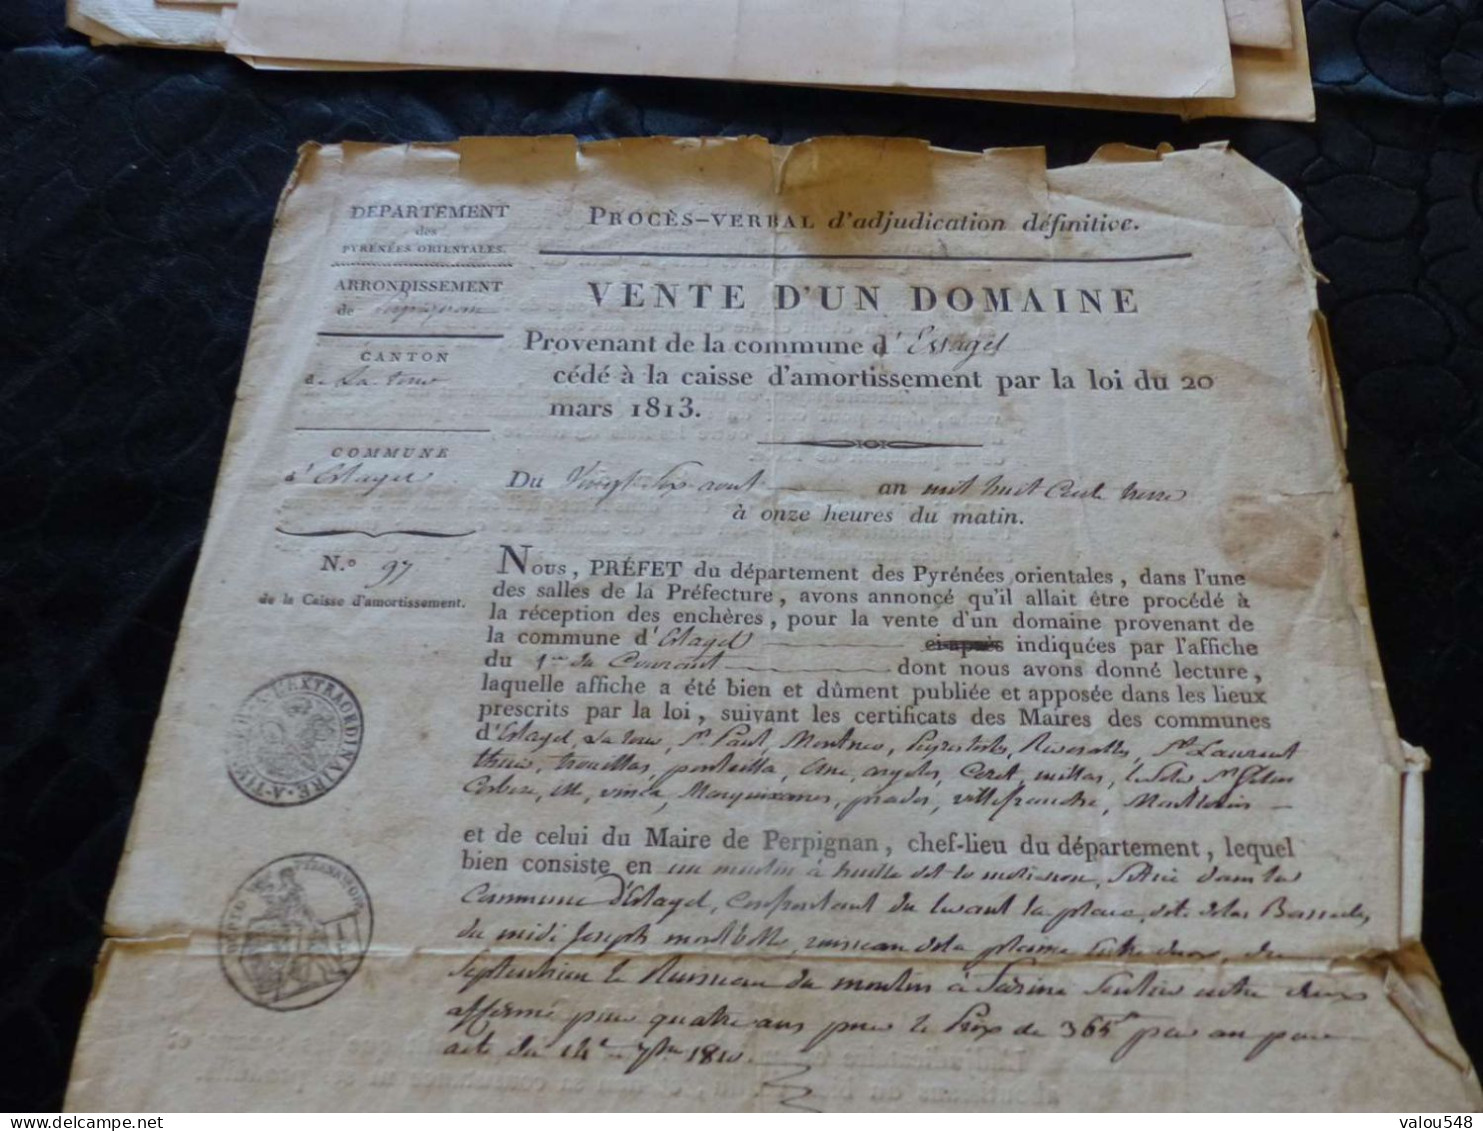 DÉPARTEMENT
des
PYRÉNÉES ORIENTALES.
ARRONDISSEMENT
de Perpignan
CANTON
de La tour
COMMUNE
d'Estagel
N.º 97
de la Caisse d'amortissement.
PROCÈS-VERBAL d'adjudication définitive.
VENTE D'UN DOMAINE
Provenant de la commune d'Estagel
cédé à la caisse d'amortissement par la loi du 20
mars 1813.
Du Vingt Six aout an mil huit Cent treize
à onze heures du matin.
Nous, PRÉFET du département des Pyrénées orientales, dans l'une
des salles de la Préfecture, avons annoncé qu'il allait être procédé à
la réception des enchères, pour la vente d'un domaine provenant de
la commune d'Estagel ci-après indiquées par l'affiche
du 1er du Courant dont nous avons donné lecture,
laquelle affiche a été bien et dûment publiée et apposée dans les lieux
prescrits par la loi, suivant les certificats des Maires des communes
d'Estagel, La tour, St Paul, Rivesaltes, St Laurent
thuir, trouillas, ponteilla, argeles, Ceret, millas, le Soler
Corbere, ille, vinca, Marquixanes, prades, villefranche, Montlouis
et de celui du Maire de Perpignan, chef-lieu du département, lequel
bien consiste en un moulin à huille Situé dans la
Commune d'Estagel, Confrontant du levant la place
du midi Joseph ruisseau de la plaine entre deux, du
Septentrion le Ruisseau du moulin à farine Sentier entre deux
affermé pour quatre ans pour le Prix de 365f par an par
acte du 14 7bre 1810.
EXTRAORDINAIRE
valou548